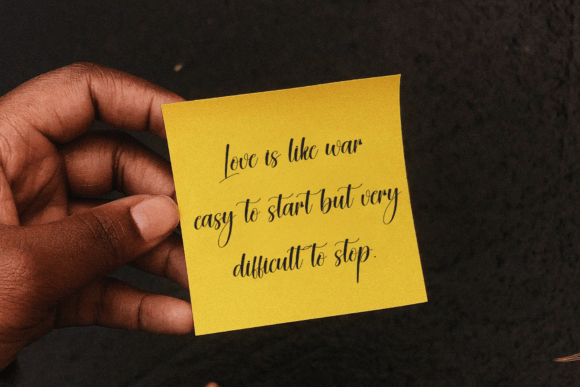 Love is like war
easy to start but very
difficult to stop.